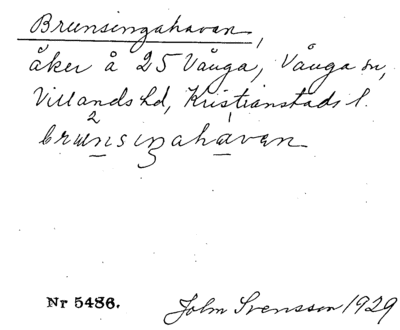 Brunsingahaven,
åker å 25 Vånga, Vånga sn,
Villands hd, Kristianstads l.
brunsingahaven
Nr 5486.
John Svensson 1929